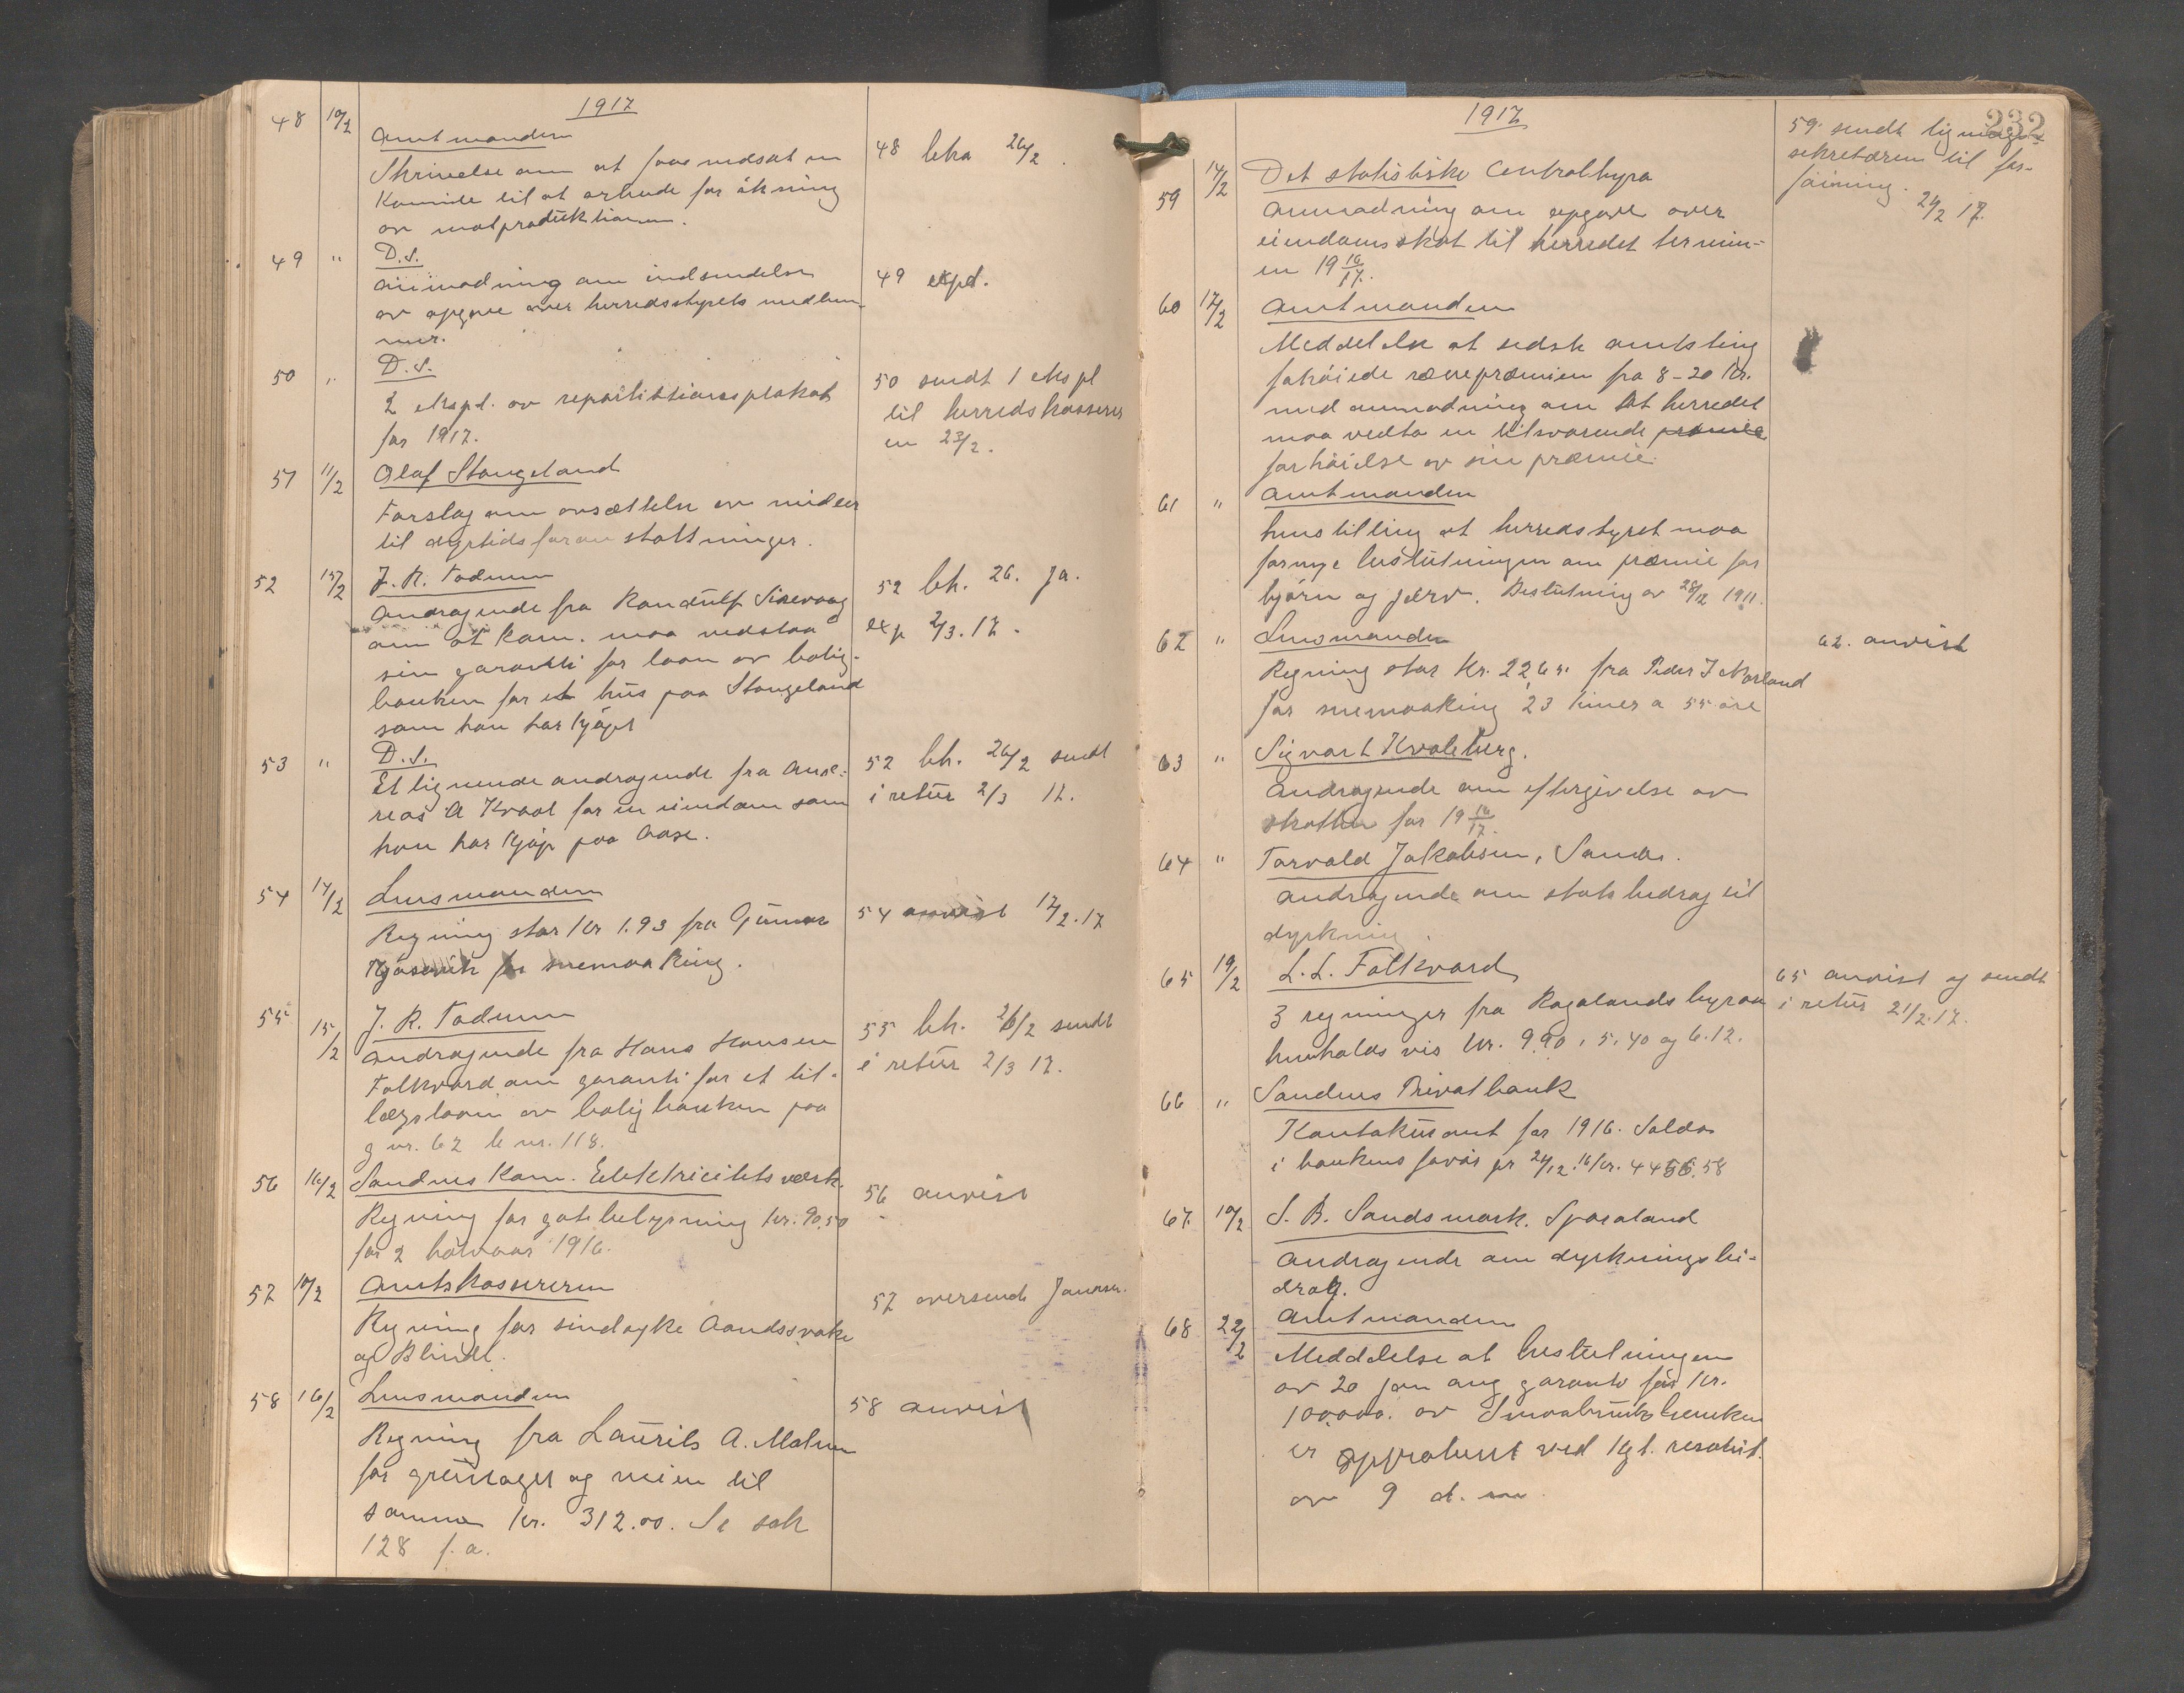 1917
48 10/2 Amtmanden
Skrivelse om at faa nedsat en
komite til at arbeide for økning
av matproduktionen.
48 beha 26/2.
49 " D.S.
Anmodning om indsendelse
av opgave over herredsstyrets medlem-
mer.
49 expd.
50 " D.S.
2 ekspl. av repartitionsplakat
for 1917.
50 sendt 1 ekspl
til herredskasserer
en 23/2.
51 11/2 Olaf Stangeland
Forslag om avsættelse av midler
til dyrtidsforanstaltninger.
52 15/2 J. R. Todnem
Andragende fra Randulf Sirevaag
om at kom. maa vedstaa
sin garanti for laan av bolig-
banken for et hus paa Stangeland
som han har kjøpt
52 beh. 26. ja.
exp 2/3.17.
53 " D.S.
Et lignende andragende fra And-
reas A Kvaal for en eiendom som
han har kjøp paa Aase.
52 beh. 26/2 sendt
i retur 2/3 17.
54 14/2 Lensmanden
Regning stor kr 1.93 fra Gunnar
Kjøsavik for snemaaking.
54 anvist 17/2.17
55 15/2 J. R. Todnem
Andragende fra Hans Hansen
Folkvord om garanti for et til-
lægslaan av boligbanken paa
g nr. 62 b nr. 118.
55 beh. 26/2 sendt
i retur 2/3 17.
56 16/2 Sandnes kom. Elektricitetsverk.
Regning for gatebelysning kr. 90.50
for 2 halvaar 1916.
56 anvist
57 10/2 Amtskassereren
Regning for sindsyke Aandssvake
og Blinde.
57 oversendt
58 16/2 Lensmanden
Regning fra Laurits A. Malmin
for grustager og veien til
samme kr. 312.00. Se sak
128 f. a.
58 anvist
232
1917
59 14/2 Det statistiske Centralbyra
Anmodning om opgave over
eiendomsskat til herredet termin-
en 19 16/17.
59 sendt lignings-
sekretæren til for-
føining.
24/2 17.
60 17/2 Amtmanden
Meddelelse at sidste amtsting
forhøiede rævepræmien fra 8-20 kr.
med anmodning om at herredet
maa vedta en tilsvarende præmie
forhøielse av sin præmie.
61 " Amtmanden
henstilling at herredstyret maa
fornye beslutningen om præmie for
bjørn og jærv. Beslutning av 28/12 1911.
62 " Lensmanden
Regning stor kr. 22,65 fra Peder J Norland
for snemaaking 23 timer a 55 øre
62. anvist
63 " Sigvart Kvaleberg.
Andragende om eftergivelse av
skatten for 19 16/17.
64 " Torvald Jakobsen, Sandn.
Andragende om statsbidrag til
dyrkning.
65 19/2 L. L. Folkvord
3 regninger fra Rogalands byraa
henholds vis kr. 9.90, 5.40 og 6.12.
65 anvist og sendt
i retur 21/2.17.
66 " Sandnes Privatbank
Kontokurant for 1916. Saldo
i bankens favør pr 24/12.16 kr. 4456.58
67. 10/2 S. B. Sandsmark. Sporaland
Andragende om dyrkningsbi-
drag.
68 22/2 Amtmanden
Meddelelse at beslutningen
av 20 jan ang garanti for kr.
100,000. av Smaabruksbanken
er approbert ved kgl. resolut.
av 9 d. m.